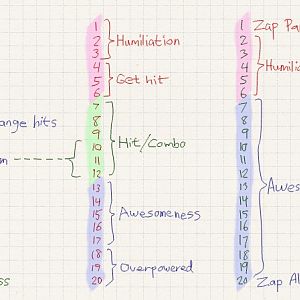 ange hits
m
ss
1
2
3
Humiliation
4
5
6
Get hit
7
8
9
10
11
12
Hit/Combo
13
14
15
16
17
Awesomeness
18
19
20
Overpowered
1
2
3
4
5
6
7
8
9
10
11
12
13
14
15
16
17
18
19
20
Zap Pa
Humili
Awes
Zap Al